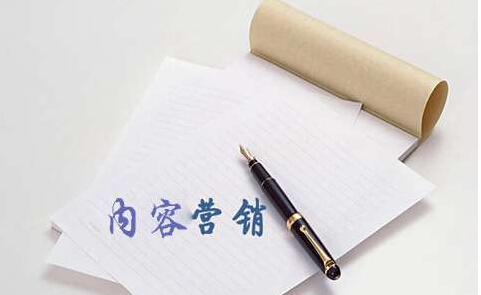 内容营销